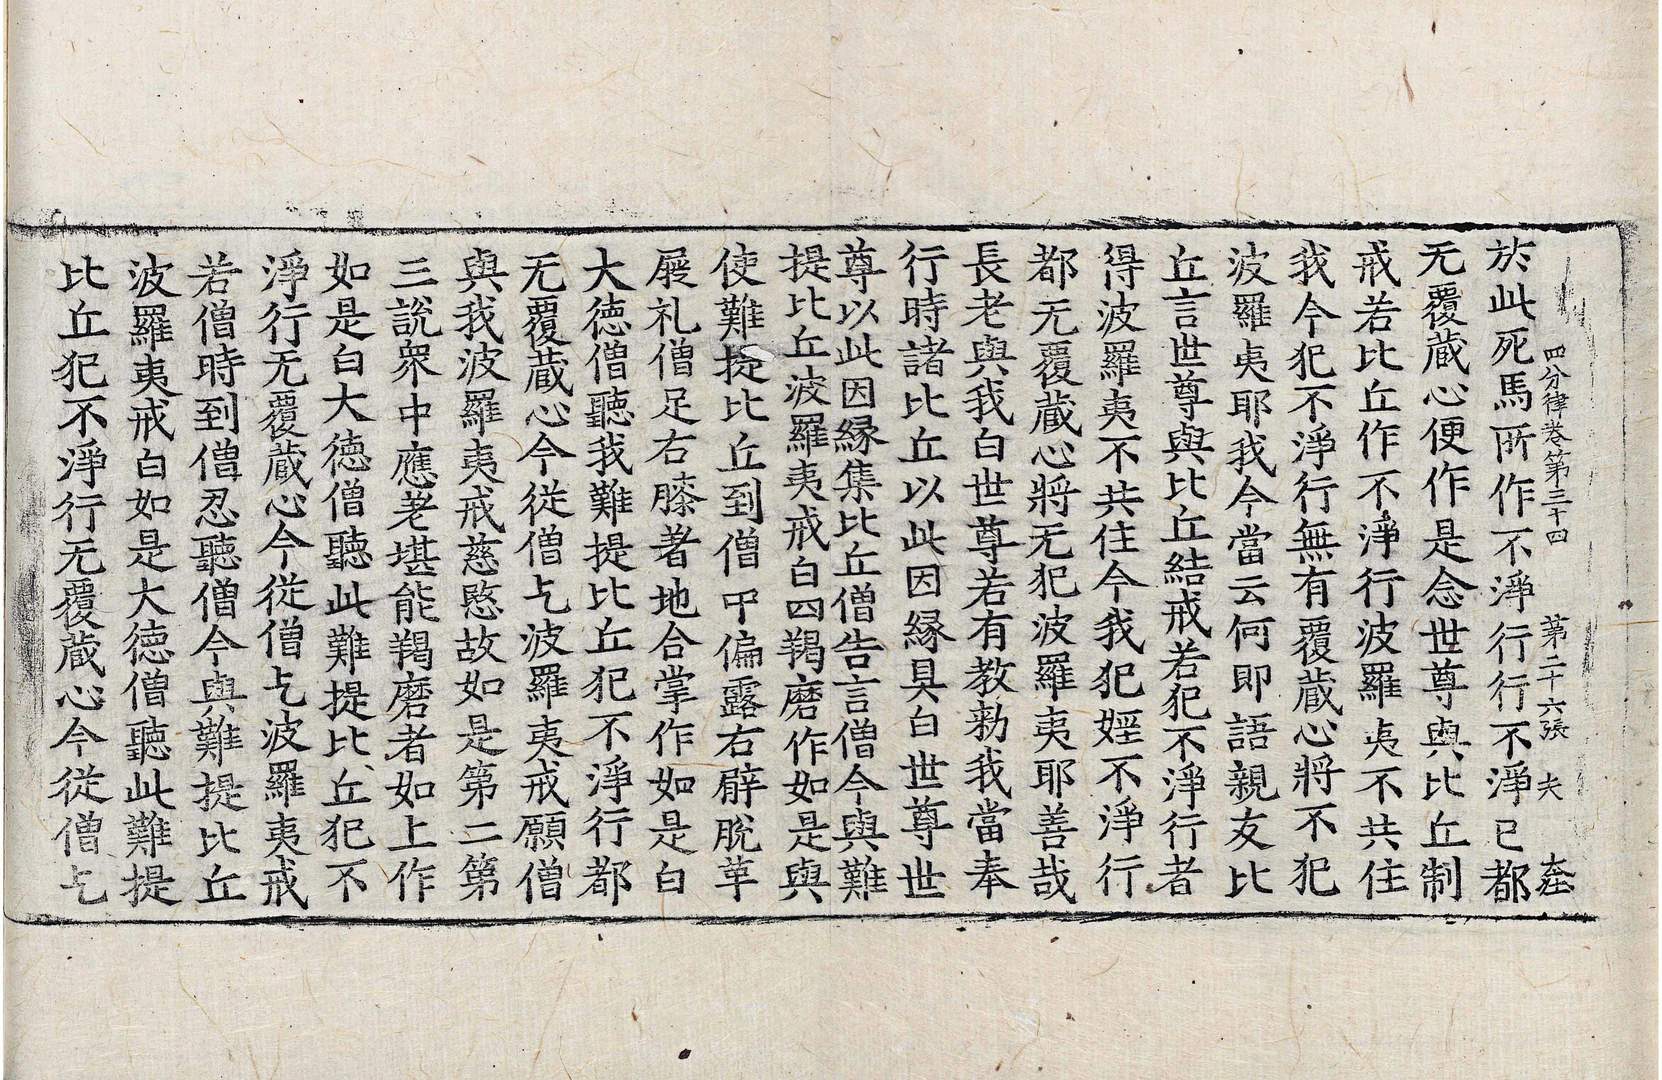 四分律卷第三十四 第二十六張 夫 大莊
於此死馬所作不淨行行不淨已都
无覆蔵心便作是念世尊與比丘制
戒若比丘作不淨行波羅夷不共住
我今犯不淨行無有覆蔵心將不犯
波羅夷耶我今當云何即語親友比
丘言世尊與比丘結戒若犯不淨行者
得波羅夷不共住今我犯婬不淨行
都无覆蔵心將无犯波羅夷耶善哉
長老與我白世尊若有教勑我當奉
行時諸比丘以此因緣具白世尊世
尊以此因緣集比丘僧告言僧今與難
提比丘波羅夷戒白四羯磨作如是與
使難提比丘到僧中偏露右臂脫革
屣礼僧足右膝著地合掌作如是白
大德僧聽我難提比丘犯不淨行都
无覆蔵心今從僧乞波羅夷戒願僧
與我波羅夷戒慈愍故如是第二第
三說衆中應老堪能羯磨者如上作
如是白大德僧聽此難提比丘犯不
淨行无覆蔵心今從僧乞波羅夷戒
若僧時到僧忍聽僧今與難提比丘
波羅夷戒白如是大德僧聽此難提
比丘犯不淨行无覆蔵心今從僧乞